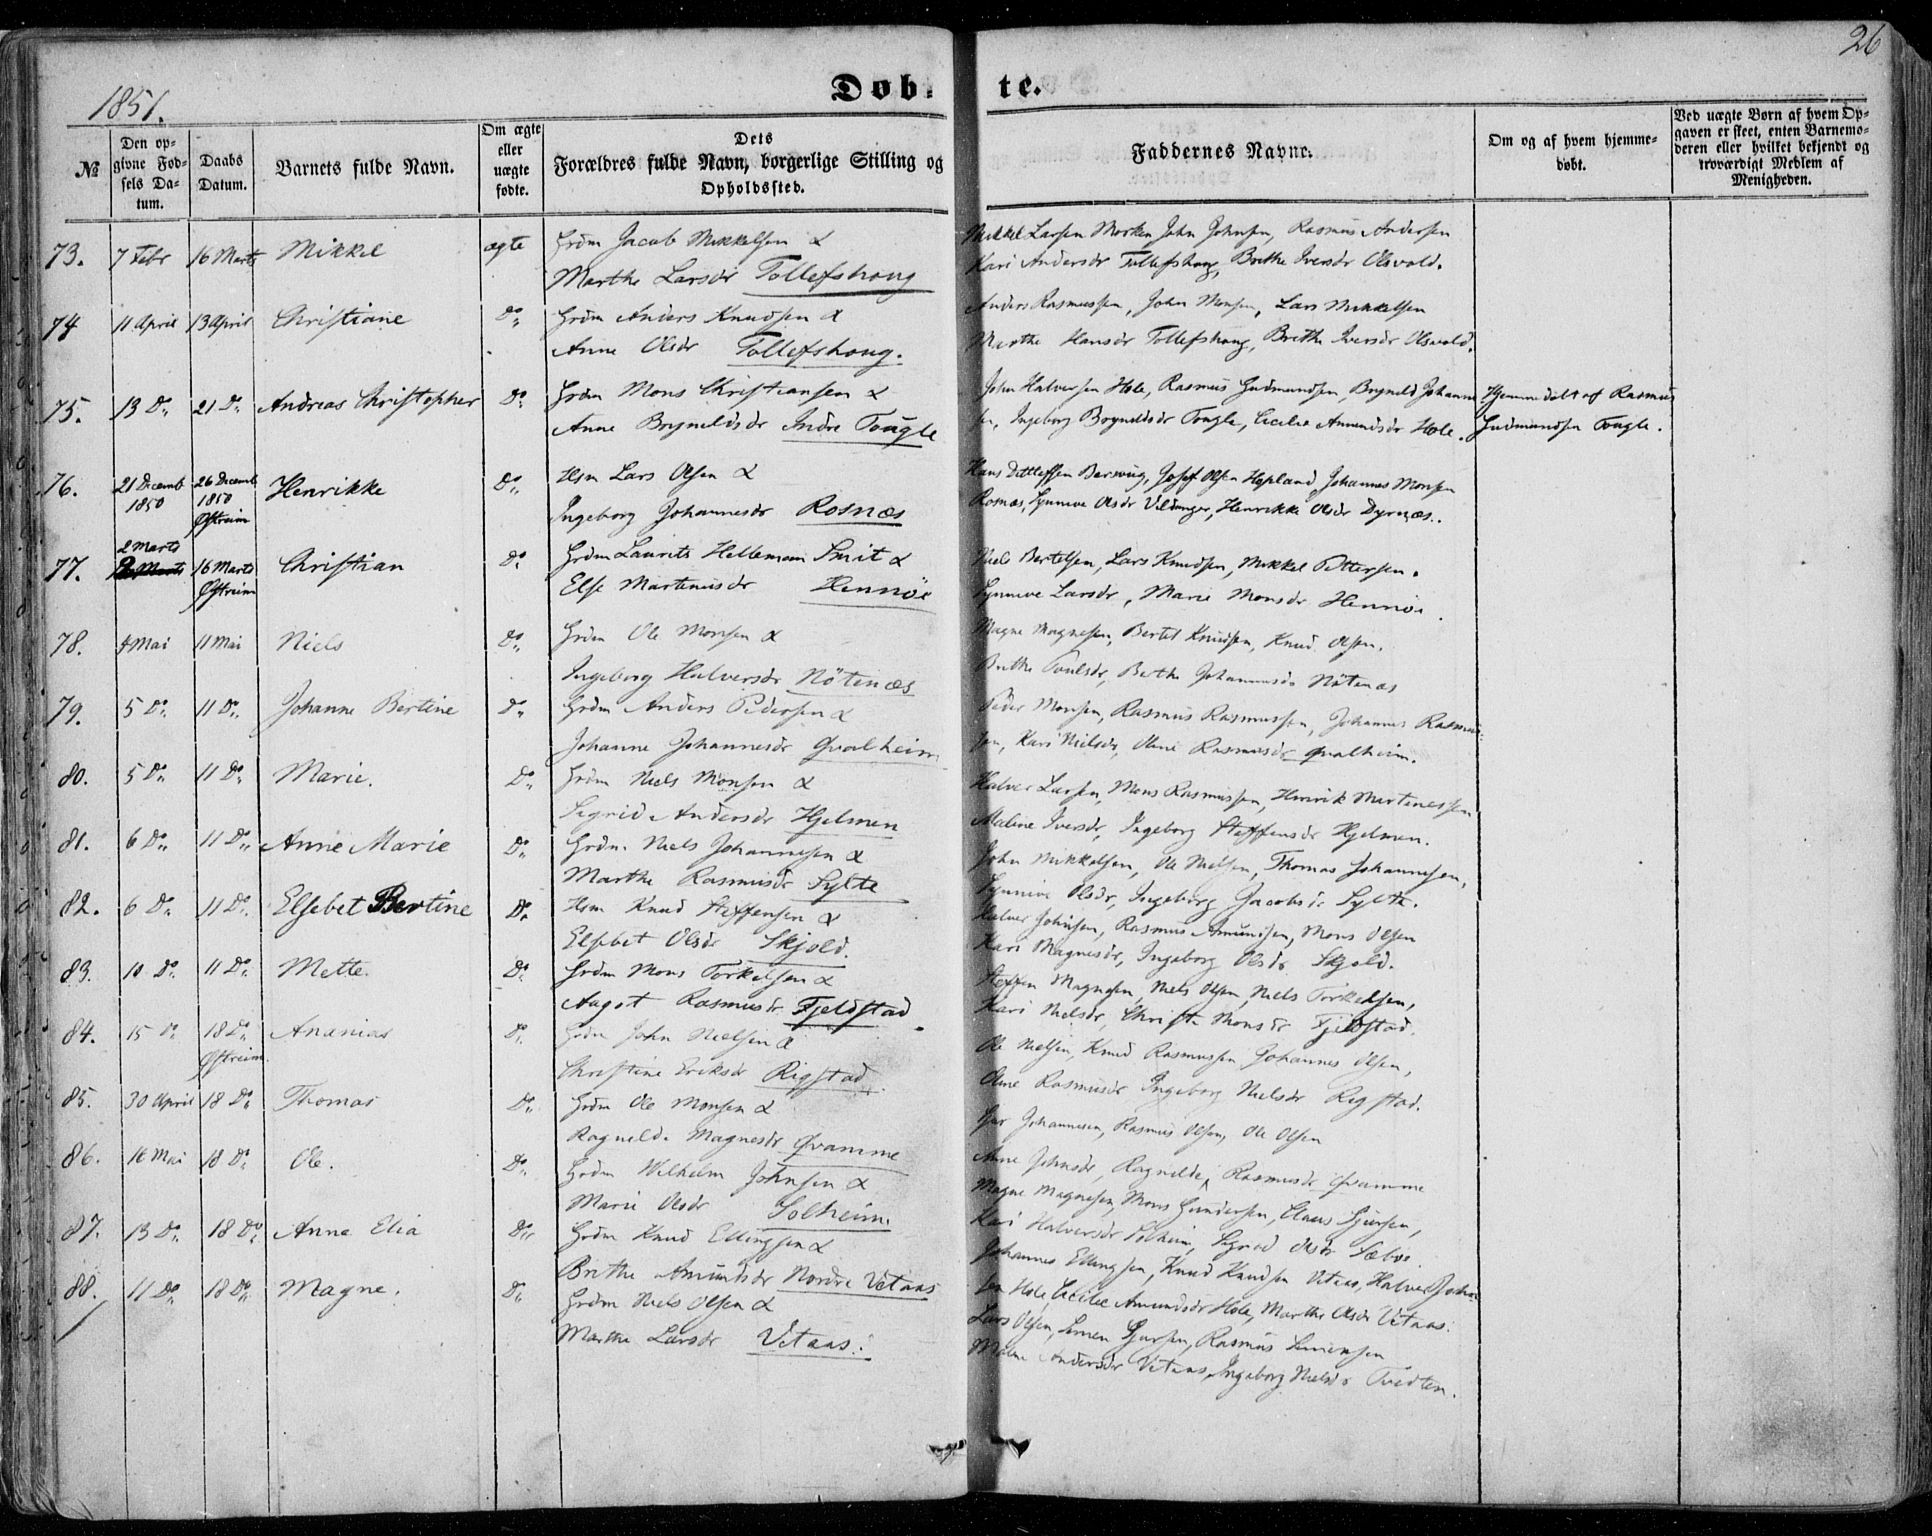 26
1851.
Døb-
te.
№
Den op-
givne Fød-
sels Da-
tum.
Daabs
Datum.
Barnets fulde Navn.
Om ægte
eller
uægte
fødte.
Dets
Forældres fulde Navn, borgerlige Stilling og
Opholdssted.
Faddernes Navne.
Om og af hvem hjemme-
døbt.
Ved uægte Børn af hvem Op-
gaven er skeet, enten Barnemo-
deren eller hvilket bekjendt og
troværdigt Medlem af
Menigheden.
73. 7 Febr 16 Marts Mikkel ægte Grdm Jacob Mikkelsen &
Marthe Larsdr Tollefshoug
Mikkel Larsen Morken John Johnsen, Rasmus Andersen
Kari Andersdr Tollefshoug, Brithe Iversdr Olsvold.
74 11 April 13 April Christiane Do Grdm Anders Knudsen &
Anne Olsdr Tollefshoug.
Anders Rasmussen, John Monsen, Lars Mikkelsen
Marthe Hansdr Tollefshoug, Brithe Iversdr Olsvold.
75. 13 Do 21 Do Andreas Christopher Do Grdm Mons Christiansen &
Anne Brynildsdr Indre Tougle
John Halversen Hole, Rasmus Gudmundsen, Brynild Johanne
sen, Ingeborg Brynildsdr Tougle, Cecilie Amundsdr Hole.
Hjemmedøbt af Rasmus
Gudmundsen Tougle.
76. 21 Decemb 1850 26 Decemb 1850 Østreim Henrikke Do Hsm Lars Olsen &
Ingeborg Johannesdr Rosnæs
Hans Dettleffsen Josef Olsen Hopland Johannes Monsen
Rosnæs, Synneve Olsdr Henrikke Olsdr Dyrnæs.
77. 2 Marts 16 Marts Østreim Christian Do Grdm Laurits Helleman Smit &
Else Martinusdr Hennöe
Niels Bertelsen, Lars Knudsen, Mikkel Pettersen.
Synneve Larsdr, Marie Monsdr Hennöe.
78. 4 Mai 11 Mai Niels Do Grdm Ole Monsen &
Ingeborg Halversdr Nötenæs
Magne Magnesen, Bertel Knudsen, Knud Olsen.
Brithe Poulsdr, Berthe Johannesdr Nötenæs
79. 5 Do 11 Do Johanne Bertine Do Grdm Anders Pedersen &
Johanne Johannesdr Qvalheim
Peder Monsen, Rasmus Rasmussen, Johannes Rasmus-
sen, Kari Nielsdr, Oline Rasmusdr Qvalheim.
80. 5 Do 11 Do Marie. Do Grdm Niels Monsen &
Segrid Andersdr Hjelmen
Halver Larsen, Mons Rasmussen, Henrik Martinessen
Maline Iversdr, Ingeborg Steffensdr Hjelmen.
81. 6 Do 11 Do Anne Marie Do Grdm. Niels Johannesen &
Marthe Rasmusdr Sylte
John Mikkelsen, Ole Nielsen, Thomas Johannesen,
Synneve Olsdr, Ingeborg Jacobsdr Sylte.
82. 6 Do 11 Do Elsebet Bertine Do Hsm Knud Steffensen &
Elsebet Olsdr Skjold.
Halver Johnsen, Rasmus Amundsen, Mons Olsen
Kari Magnesdr, Ingeborg Olsdr Skjold.
83. 10 Do 11 Do Mette. Do Grdm Mons Torkelsen &
Aagot Rasmusdr Fjeldstad.
Steffen Magnesen, Niels Olsen, Niels Torkelsen,
Kari Nielsdr, Christi Monsdr Fjeldstad.
84. 15 Do 18 Do Østreim. Ananias Do Grdm John Nielsen &
Christine Eriksdr Rigstad.
Ole Nielsen, Knud Rasmussen Johannes Olsen,
Oline Rasmusdr Ingeborg Nielsdr Rigstad.
85. 30 April 18 Do Thomas Do Grdm Ole Monsen &
Ragnilde Magnesdr Qvamme
Johannesen, Rasmus Olsen, Ole Olsen
Anne Johnsdr, Ragnilde Rasmusdr Qvamme
86. 16 Mai 18 Do Ole. Do Grdm Wilhelm Johnsen &
Marie Olsdr Solheim.
Magne Magnesen, Mons Gundersen, Claus Sjursen,
Kari Halversdr Solheim, Sigrid Olsdr Sæbø.
87. 13 Do 18 Do Anne Elia Do Grdm Knud Ellingsen &
Brithe Amundsdr Nordre Vetaas
Johannes Ellingsen, Knud Knudsen Vetaas, Halver Johan
sen Hole, Cecilie Amundsdr Hole, Marthe Olsdr Vetaas.
88. 11 Do 18 Do Magne. Do Grdm Niels Olsen &
Marthe Larsdr Vetaas.
Lars Olsen, Simen Sjursen, Rasmus Simensen
Andersdr Vetaas, Ingeborg Nielsdr Tvedten.